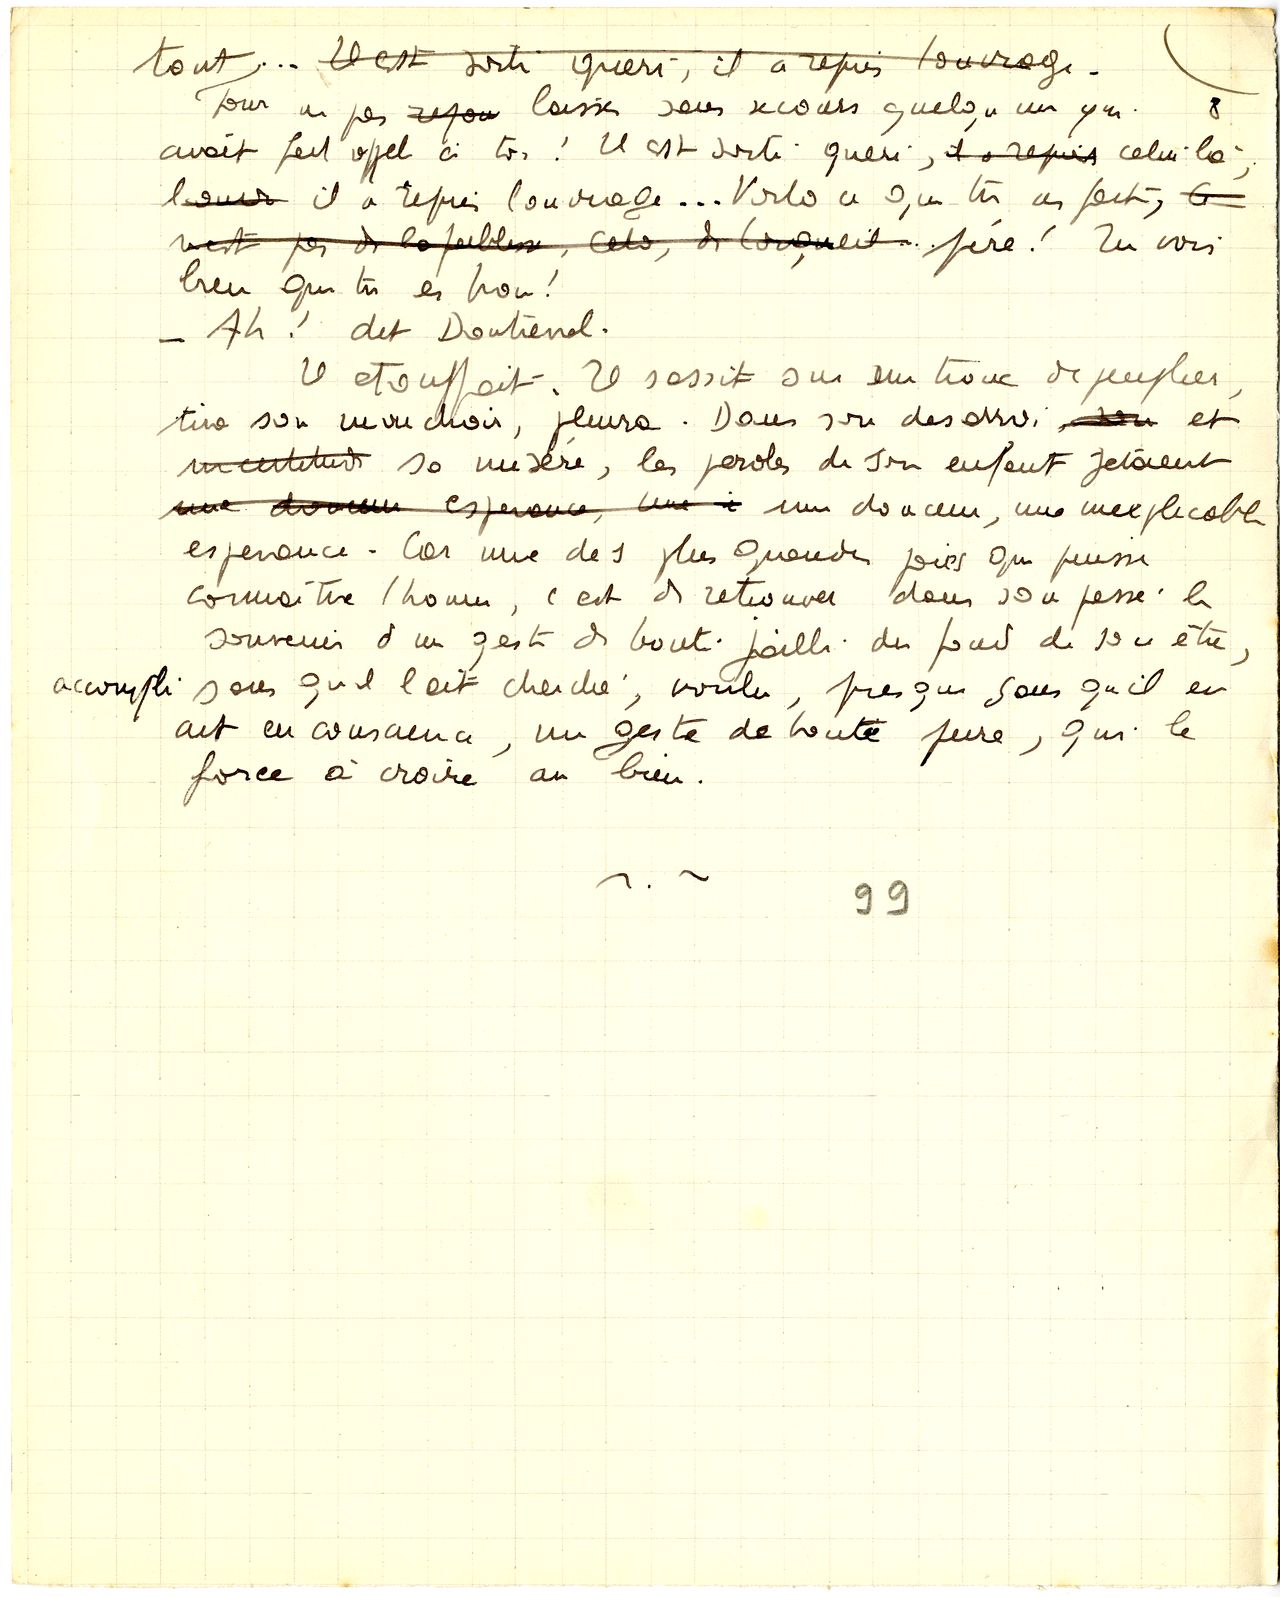 tout,... Il est sorti guéri, il a repris l'ouvrage.
8
Pour ne pas repou laisser sans secours quelqu'un qui
avait fait appel à toi ! Il est sorti guéri, il a repris celui là,
l'ouvr il a repris l'ouvrage... Voilà ce que tu as fait, Ce
n'est pas de la faiblesse, cela, de l'orgueil... père ! Tu vois
bien que tu es bon !
_ Ah ! dit Doutreval.
Il étouffait. Il s'assit sur un tronc de peuplier,
tira son mouchoir, pleura. Dans son désarroi, son et
incertitude sa misère, les paroles de son enfant jetaient
une douceur esperance, une i une douceur, une inexplicable
esperance. Car une des plus grandes joies que puisse
connaître l'homme, c'est de retrouver dans son passé le
souvenir d'un geste de bonté jailli du fond de son être,
accompli sans qu'il l'ait cherché, voulu, presque sans qu'il en
ait eu conscience, un geste de bonté pure, qui le
force à croire au bien.
~ . ~
99